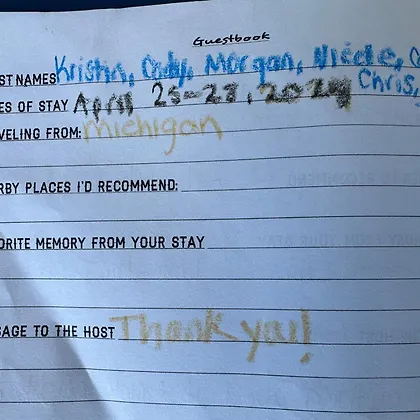 Guestbook
ST NAMES Kristin, Cody, Morgan, Nicole,
Chris,
ES OF STAY April 25-28, 2024
VELING FROM: michigan
RBY PLACES I'D RECOMMEND:
ORITE MEMORY FROM YOUR STAY
SAGE TO THE HOST Thank ya!!